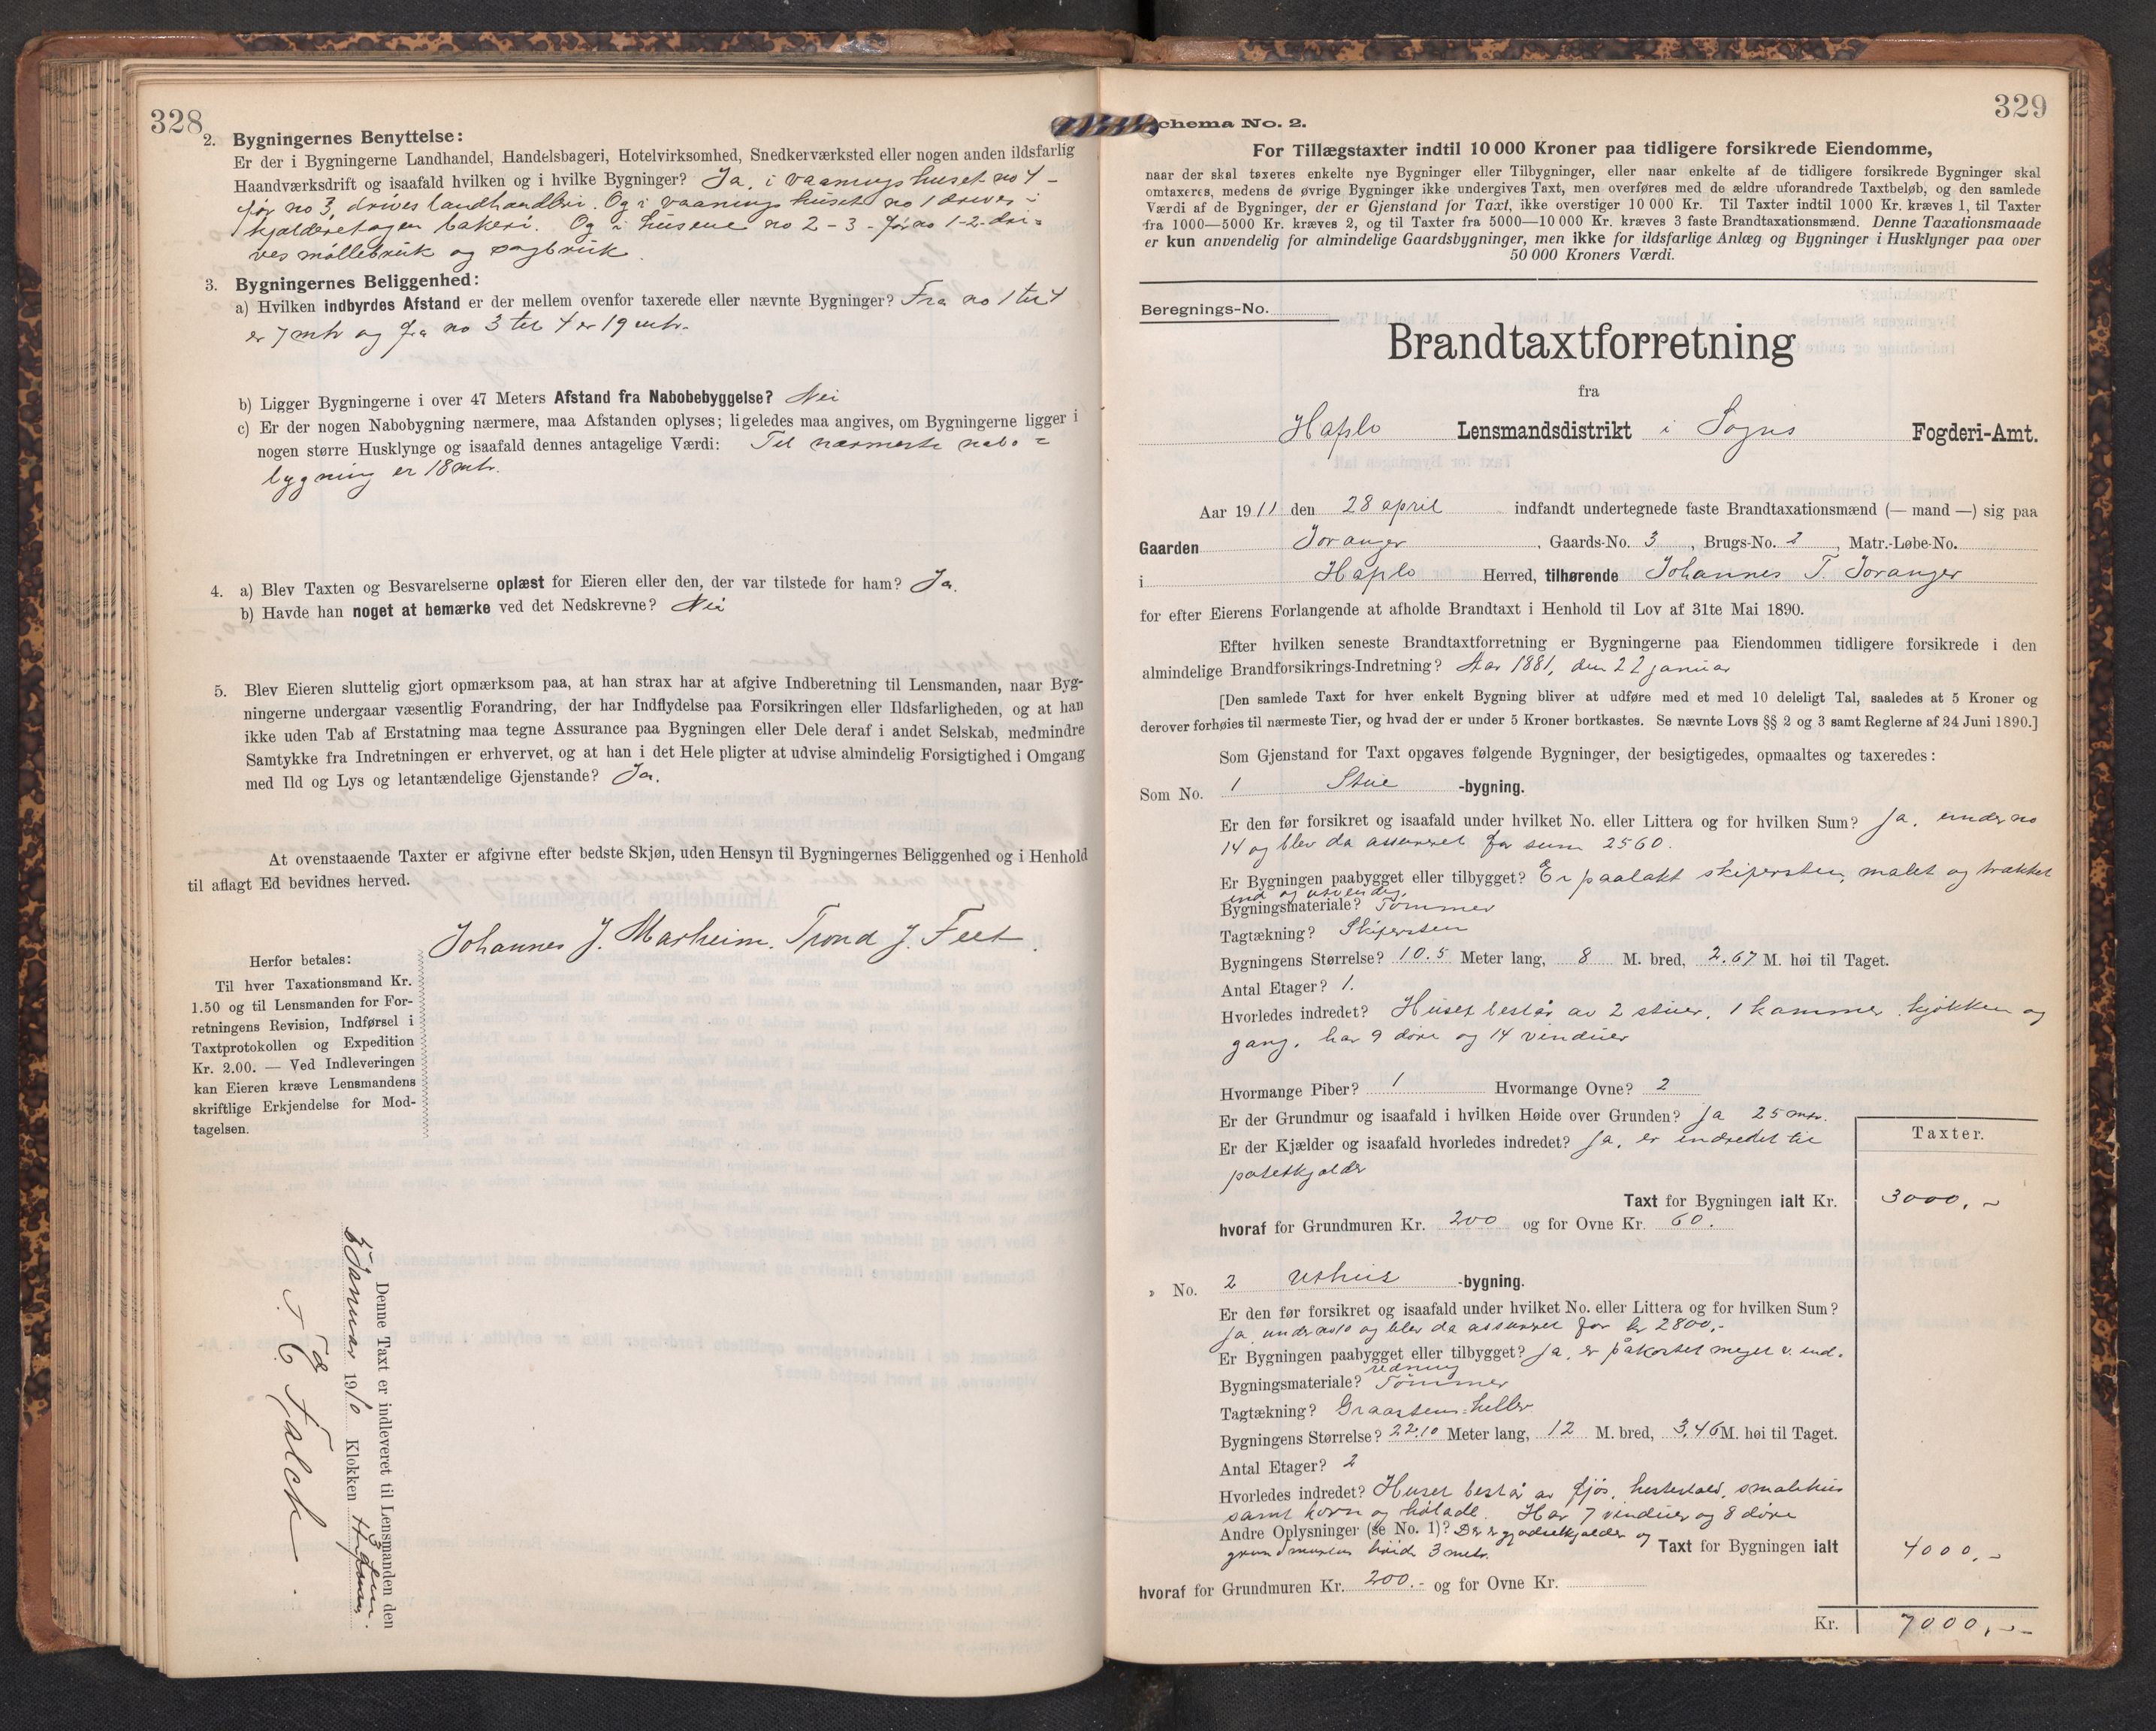 328
2. Bygningernes Benyttelse:
Er der i Bygningerne Landhandel, Handelsbageri, Hotelvirksomhed, Snedkerværksted eller nogen anden ildsfarlig
Haandværksdrift og isaafald hvilken og i hvilke Bygninger? Ja, i vaaningshuset no 4 -
før no 3, drives landhandleri. Og i vaanings huset no 1 drives i
kjælderetagen bakeri. Og i husene no 2 - 3 - før no 1-2- dri=
ves møllebruk og sagbruk
3. Bygningernes Beliggenhed:
a) Hvilken indbyrdes Afstand er der mellem ovenfor taxerede eller nævnte Bygninger? Fra no 1 til 4
er 7 mtr og fra no 3 til 4 er 19 mtr.
b) Ligger Bygningerne i over 47 Meters Afstand fra Nabobebyggelse? Nei
c) Er der nogen Nabobygning nærmere, maa Afstanden oplyses; ligeledes maa angives, om Bygningerne ligger i
nogen større Husklynge og isaafald dennes antagelige Værdi: Til nærmeste nabo =
bygning er 18 mtr.
4. a) Blev Taxten og Besvarelserne oplæst for Eieren eller den, der var tilstede for ham? Ja.
b) Havde han noget at bemærke ved det Nedskrevne? Nei
5. Blev Eieren sluttelig gjort opmærksom paa, at han strax har at afgive Indberetning til Lensmanden, naar Byg-
ningerne undergaar væsentlig Forandring, der har Indflydelse paa Forsikringen eller Ildsfarligheden, og at han
ikke uden Tab af Erstatning maa tegne Assurance paa Bygningen eller Dele deraf i andet Selskab, medmindre
Samtykke fra Indretningen er erhvervet, og at han i det Hele pligter at udvise almindelig Forsigtighed i Omgang
med Ild og Lys og letantændelige Gjenstande? Ja.
At ovenstaaende Taxter er afgivne efter bedste Skjøn, uden Hensyn til Bygningernes Beliggenhed og i Henhold
til aflagt Ed bevidnes herved.
Johannes J. Marheim. Trond J. Feet.
Herfor betales:
Til hver Taxationsmand Kr.
1.50 og til Lensmanden for For-
retningens Revision, Indførsel i
Taxtprotokollen og Expedition
Kr. 2.00. — Ved Indleveringen
kan Eieren kræve Lensmandens
skriftlige Erkjendelse for Mod-
tagelsen.
Denne Taxt er indleveret til Lensmanden den
Januar 1910 Klokken
Falch.
329
chema No. 2.
For Tillægstaxter indtil 10 000 Kroner paa tidligere forsikrede Eiendomme,
naar der skal taxeres enkelte nye Bygninger eller Tilbygninger, eller naar enkelte af de tidligere forsikrede Bygninger skal
omtaxeres, medens de øvrige Bygninger ikke undergives Taxt, men overføres med de ældre uforandrede Taxtbeløb, og den samlede
Værdi af de Bygninger, der er Gjenstand for Taxt, ikke overstiger 10 000 Kr. Til Taxter indtil 1000 Kr. kræves 1, til Taxter
fra 1000—5000 Kr. kræves 2, og til Taxter fra 5000—10 000 Kr. kræves 3 faste Brandtaxationsmænd. Denne Taxationsmaade
er kun anvendelig for almindelige Gaardsbygninger, men ikke for ildsfarlige Anlæg og Bygninger i Husklynger paa over
50 000 Kroners Værdi.
Beregnings-No.
Brandtaxtforretning
fra
Haflo Lensmandsdistrikt i Sogns Fogderi-Amt.
Aar 1911 den 28 april indfandt undertegnede faste Brandtaxationsmænd (— mand —) sig paa
Gaarden Joranger, Gaards-No. 3, Brugs-No. 2, Matr.-Løbe-No.
i Haflo Herred, tilhørende Johannes T. Joranger
for efter Eierens Forlangende at afholde Brandtaxt i Henhold til Lov af 31te Mai 1890.
Efter hvilken seneste Brandtaxtforretning er Bygningerne paa Eiendommen tidligere forsikrede i den
almindelige Brandforsikrings-Indretning? Aar 1881, den 22 januar
[Den samlede Taxt for hver enkelt Bygning bliver at udføre med et med 10 deleligt Tal, saaledes at 5 Kroner og
derover forhøies til nærmeste Tier, og hvad der er under 5 Kroner bortkastes. Se nævnte Lovs §§ 2 og 3 samt Reglerne af 24 Juni 1890.]
Som Gjenstand for Taxt opgaves følgende Bygninger, der besigtigedes, opmaaltes og taxeredes:
Som No. 1 Stue -bygning.
Er den før forsikret og isaafald under hvilket No. eller Littera og for hvilken Sum? Ja, under no
14 og blev da assureret for sum 2560.
Er Bygningen paabygget eller tilbygget? Er paalakt skifersten, malet og trukket
ind og utvendig.
Bygningsmateriale? Tømmer
Tagtækning? Skifersten
Bygningens Størrelse? 10.5 Meter lang, 8 M. bred, 2.67 M. høi til Taget.
Antal Etager? 1.
Hvorledes indredet? Huset består av 2 stuer, 1 kammer, kjøkken og
gang, har 9 døre og 14 vinduer
Hvormange Piber? 1 Hvormange Ovne? 2
Er der Grundmur og isaafald i hvilken Høide over Grunden? Ja 25 mtr.
Er der Kjælder og isaafald hvorledes indredet? Ja, er indredet til
potetkjælder
Taxter.
Taxt for Bygningen ialt Kr. 3000,-
hvoraf for Grundmuren Kr. 200 og for Ovne Kr. 60.
» No. 2 Uthus -bygning.
Er den før forsikret og isaafald under hvilket No. eller Littera og for hvilken Sum?
Ja under no 10 og blev da assureret for kr 2800,-
Er Bygningen paabygget eller tilbygget? Ja, er påkostet meget v. ind.
redning
Bygningsmateriale? Tømmer
Tagtækning? Graastens=heller
Bygningens Størrelse? 22.10 Meter lang, 12 M. bred, 3,46 M. høi til Taget.
Antal Etager? 2
Hvorledes indredet? Huset består av fjøs, hestestald, smalehus
samt korn og hølade. Har 7 vinduer og 8 døre
Andre Oplysninger (se No. 1)? Der er gjødselkjælder og
grundmurens høide 3 metr.
Taxt for Bygningen ialt 4000,-
hvoraf for Grundmuren Kr. 200.- og for Ovne Kr.
Kr. 7000,--